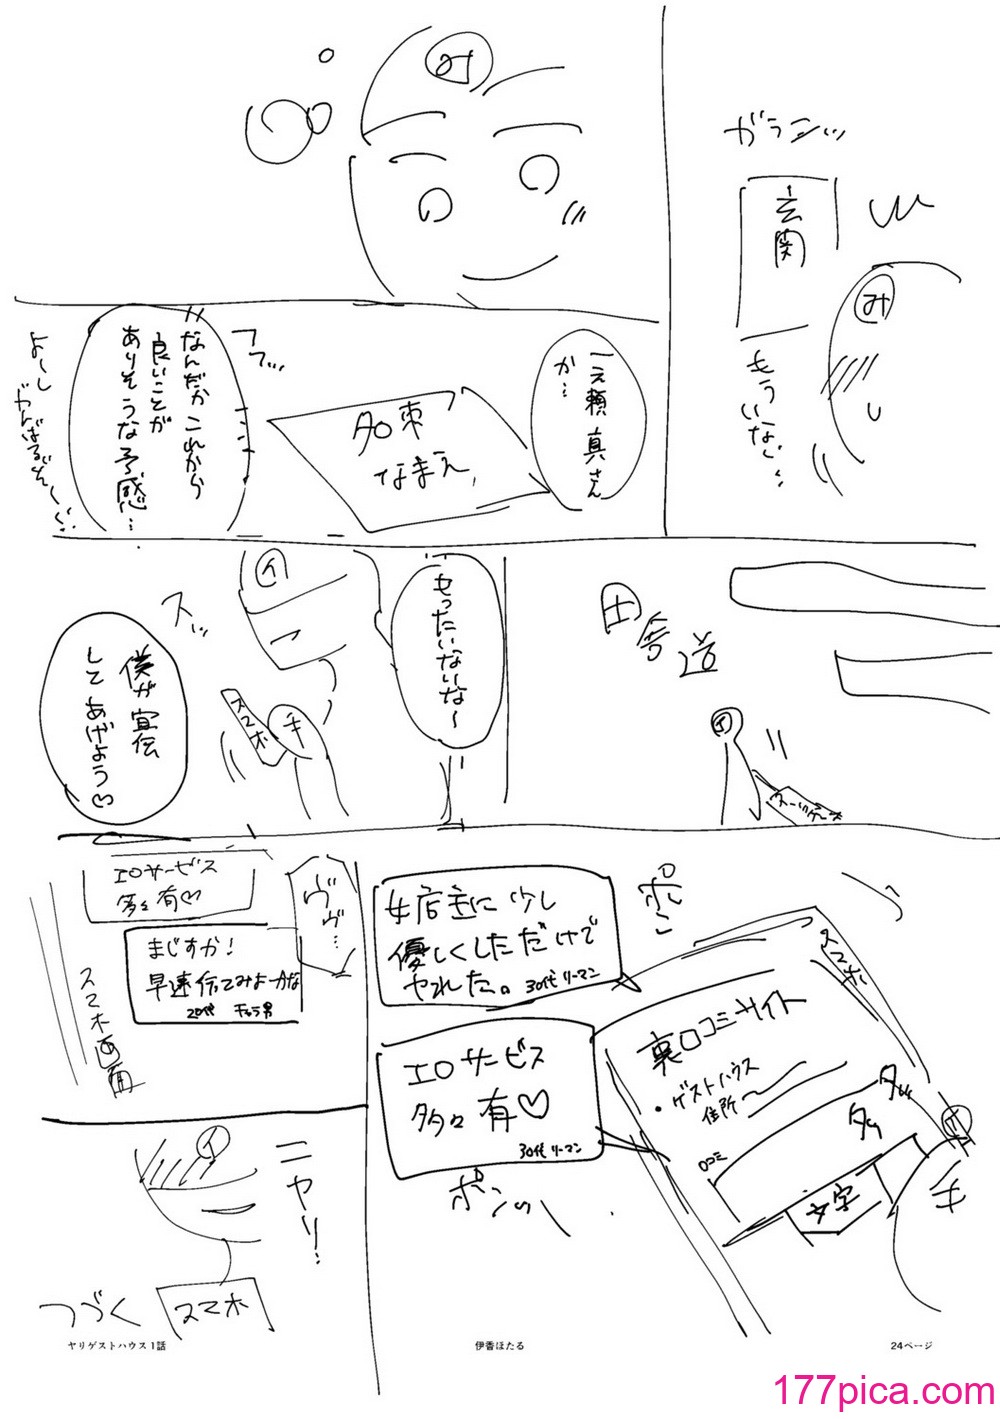 ガラーンッ
玄関
み
もういない…
み
一之瀬 真さん
か…
名束
なまえ
フフ…
なんだか これから
良いことが
ありそうな予感…
よーし
がんばるぞーぐ
田舎道
イ
キャリーケース
もったいないな〜
イ
スッ
スマホ
手
僕が宣伝
してあげよう♡
ポン
女店主に少し
優しくしただけで
ヤれた。
30代 リーマン
スマホ
裏口コミサイト
・ゲストハウス
住所
口コミ
タッ
タッ
文字
イ
手
エロサービス
多々有♡
30代 リーマン
ポンッ
ヴヴ…
エロサービス
多々有♡
まじすか!
早速行ってみよーかな
20代 チャラ男
スマホ画面
イ
ニヤリ!
スマホ
つづく
ヤリゲストハウス1話
伊香ほたる
24ページ
177pica.com